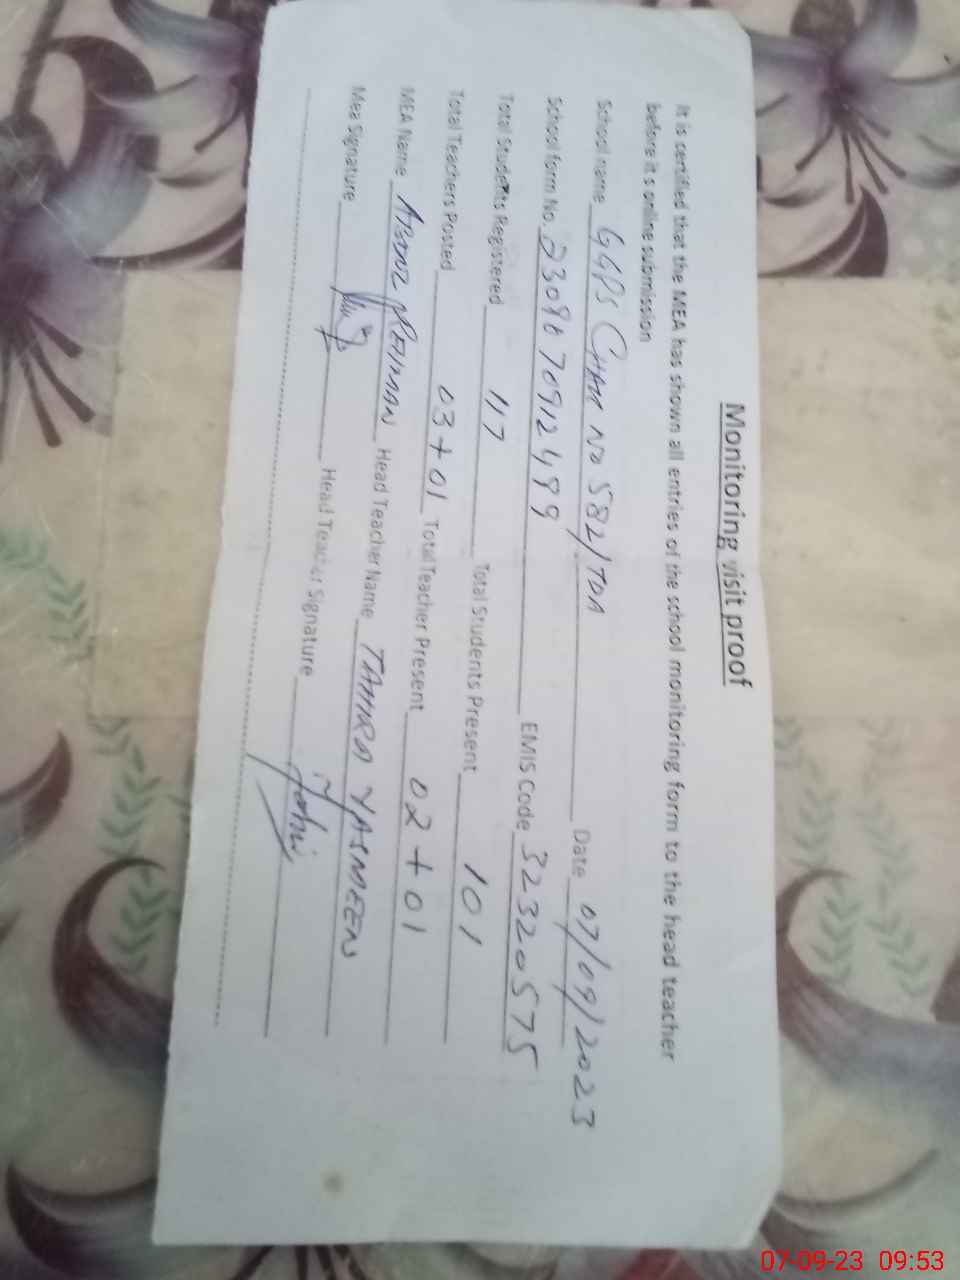 Monitoring visit proof
It is certified that the MEA has shown all entries of the school monitoring form to the head teacher
before it s online submission
School name GGPS CHAK NO 582/TDA Date 07/09/2023
School form No. 2309670912499 EMIS Code 32320575
Total Students Registered 117 Total Students Present 101
Total Teachers Posted 03+01 Total Teacher Present 02+01
MEA Name REHMAN Head Teacher Name TAHIRA YASMEEN
Mea Signature Head Teacher Signature
07-09-23 09:53